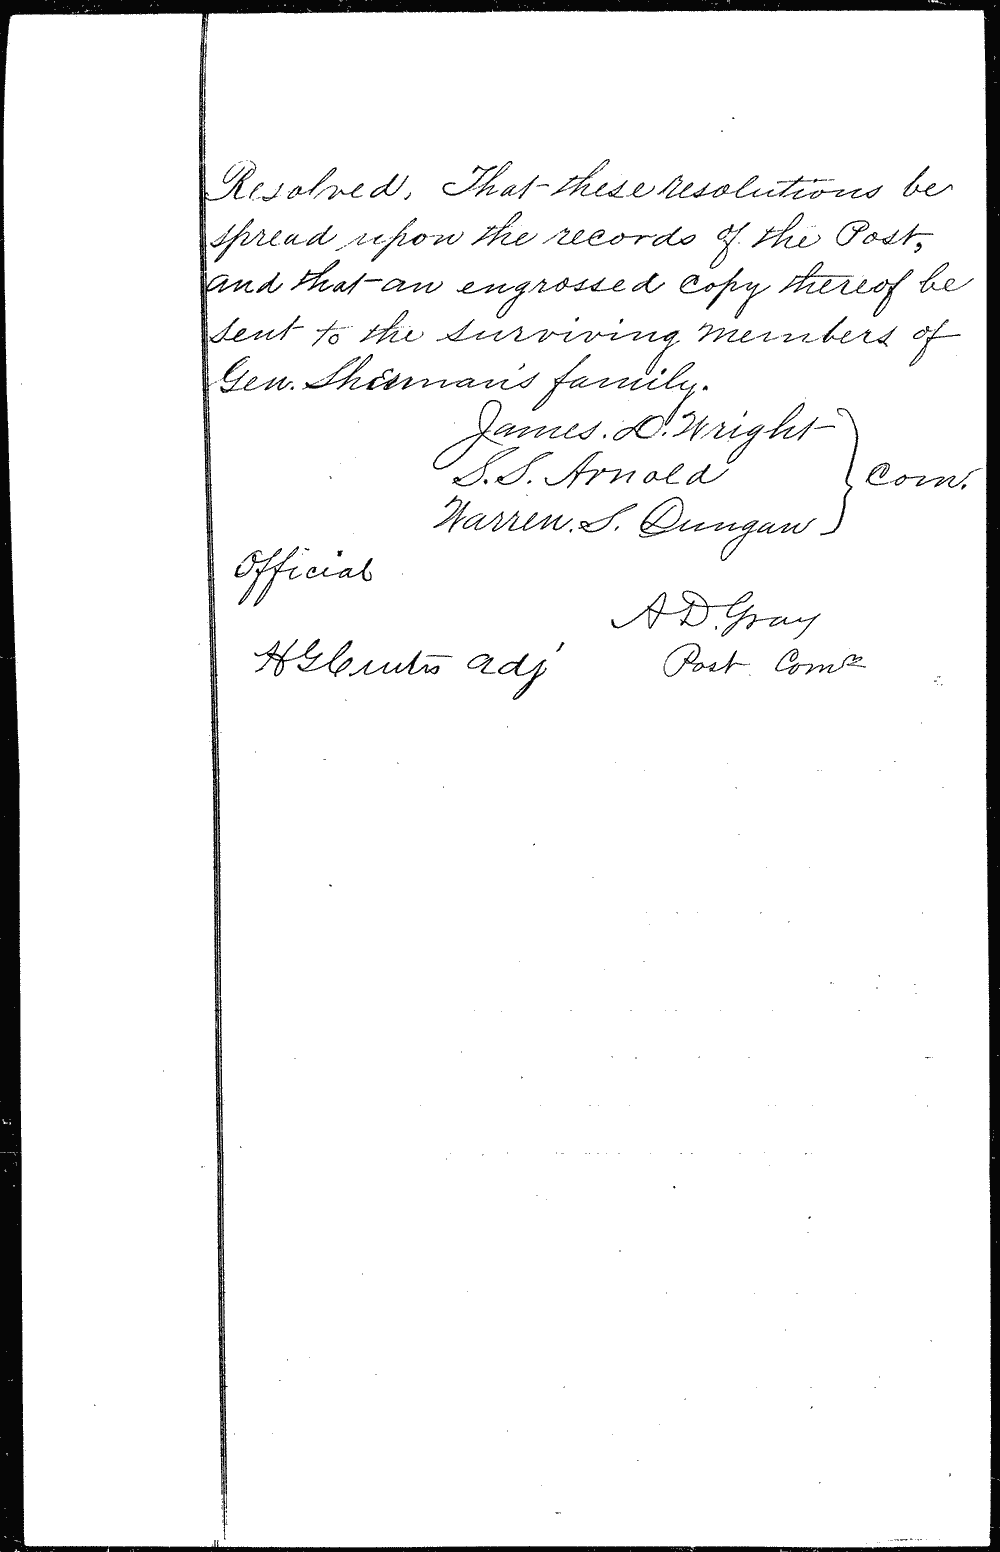 Resolved, That these resolutions be
spread upon the records of the Post,
and that an engrossed copy thereof be
sent to the surviving members of
Gen. Sherman's family.
James. D. Wright
S. S. Arnold } Com.
Warren. S. Dungan
Official
A D. Gray
H G Curtis Adj'
Post Comr